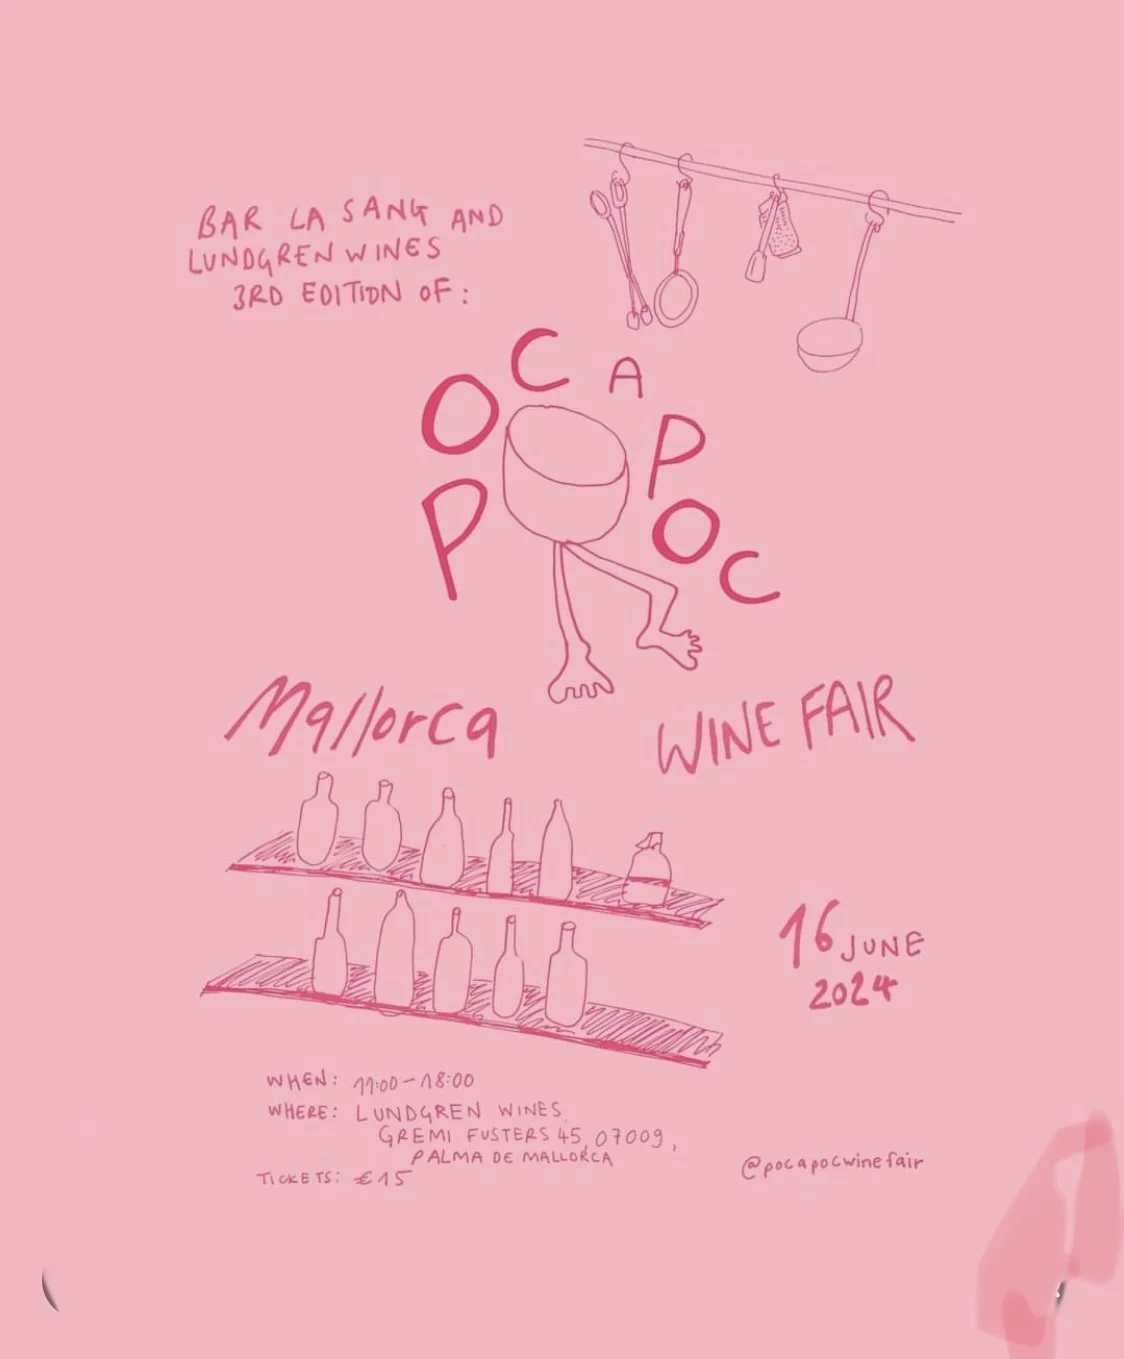 BAR LA SANG AND
LUNDGREN WINES
3RD EDITION OF:
POC A POC
Mallorca WINE FAIR
16 JUNE
2024
WHEN: 11:00-18:00
WHERE: LUNDGREN WINES,
GREMI FUSTERS 45, 07009,
PALMA DE MALLORCA
TICKETS: €15
@pocapocwinefair